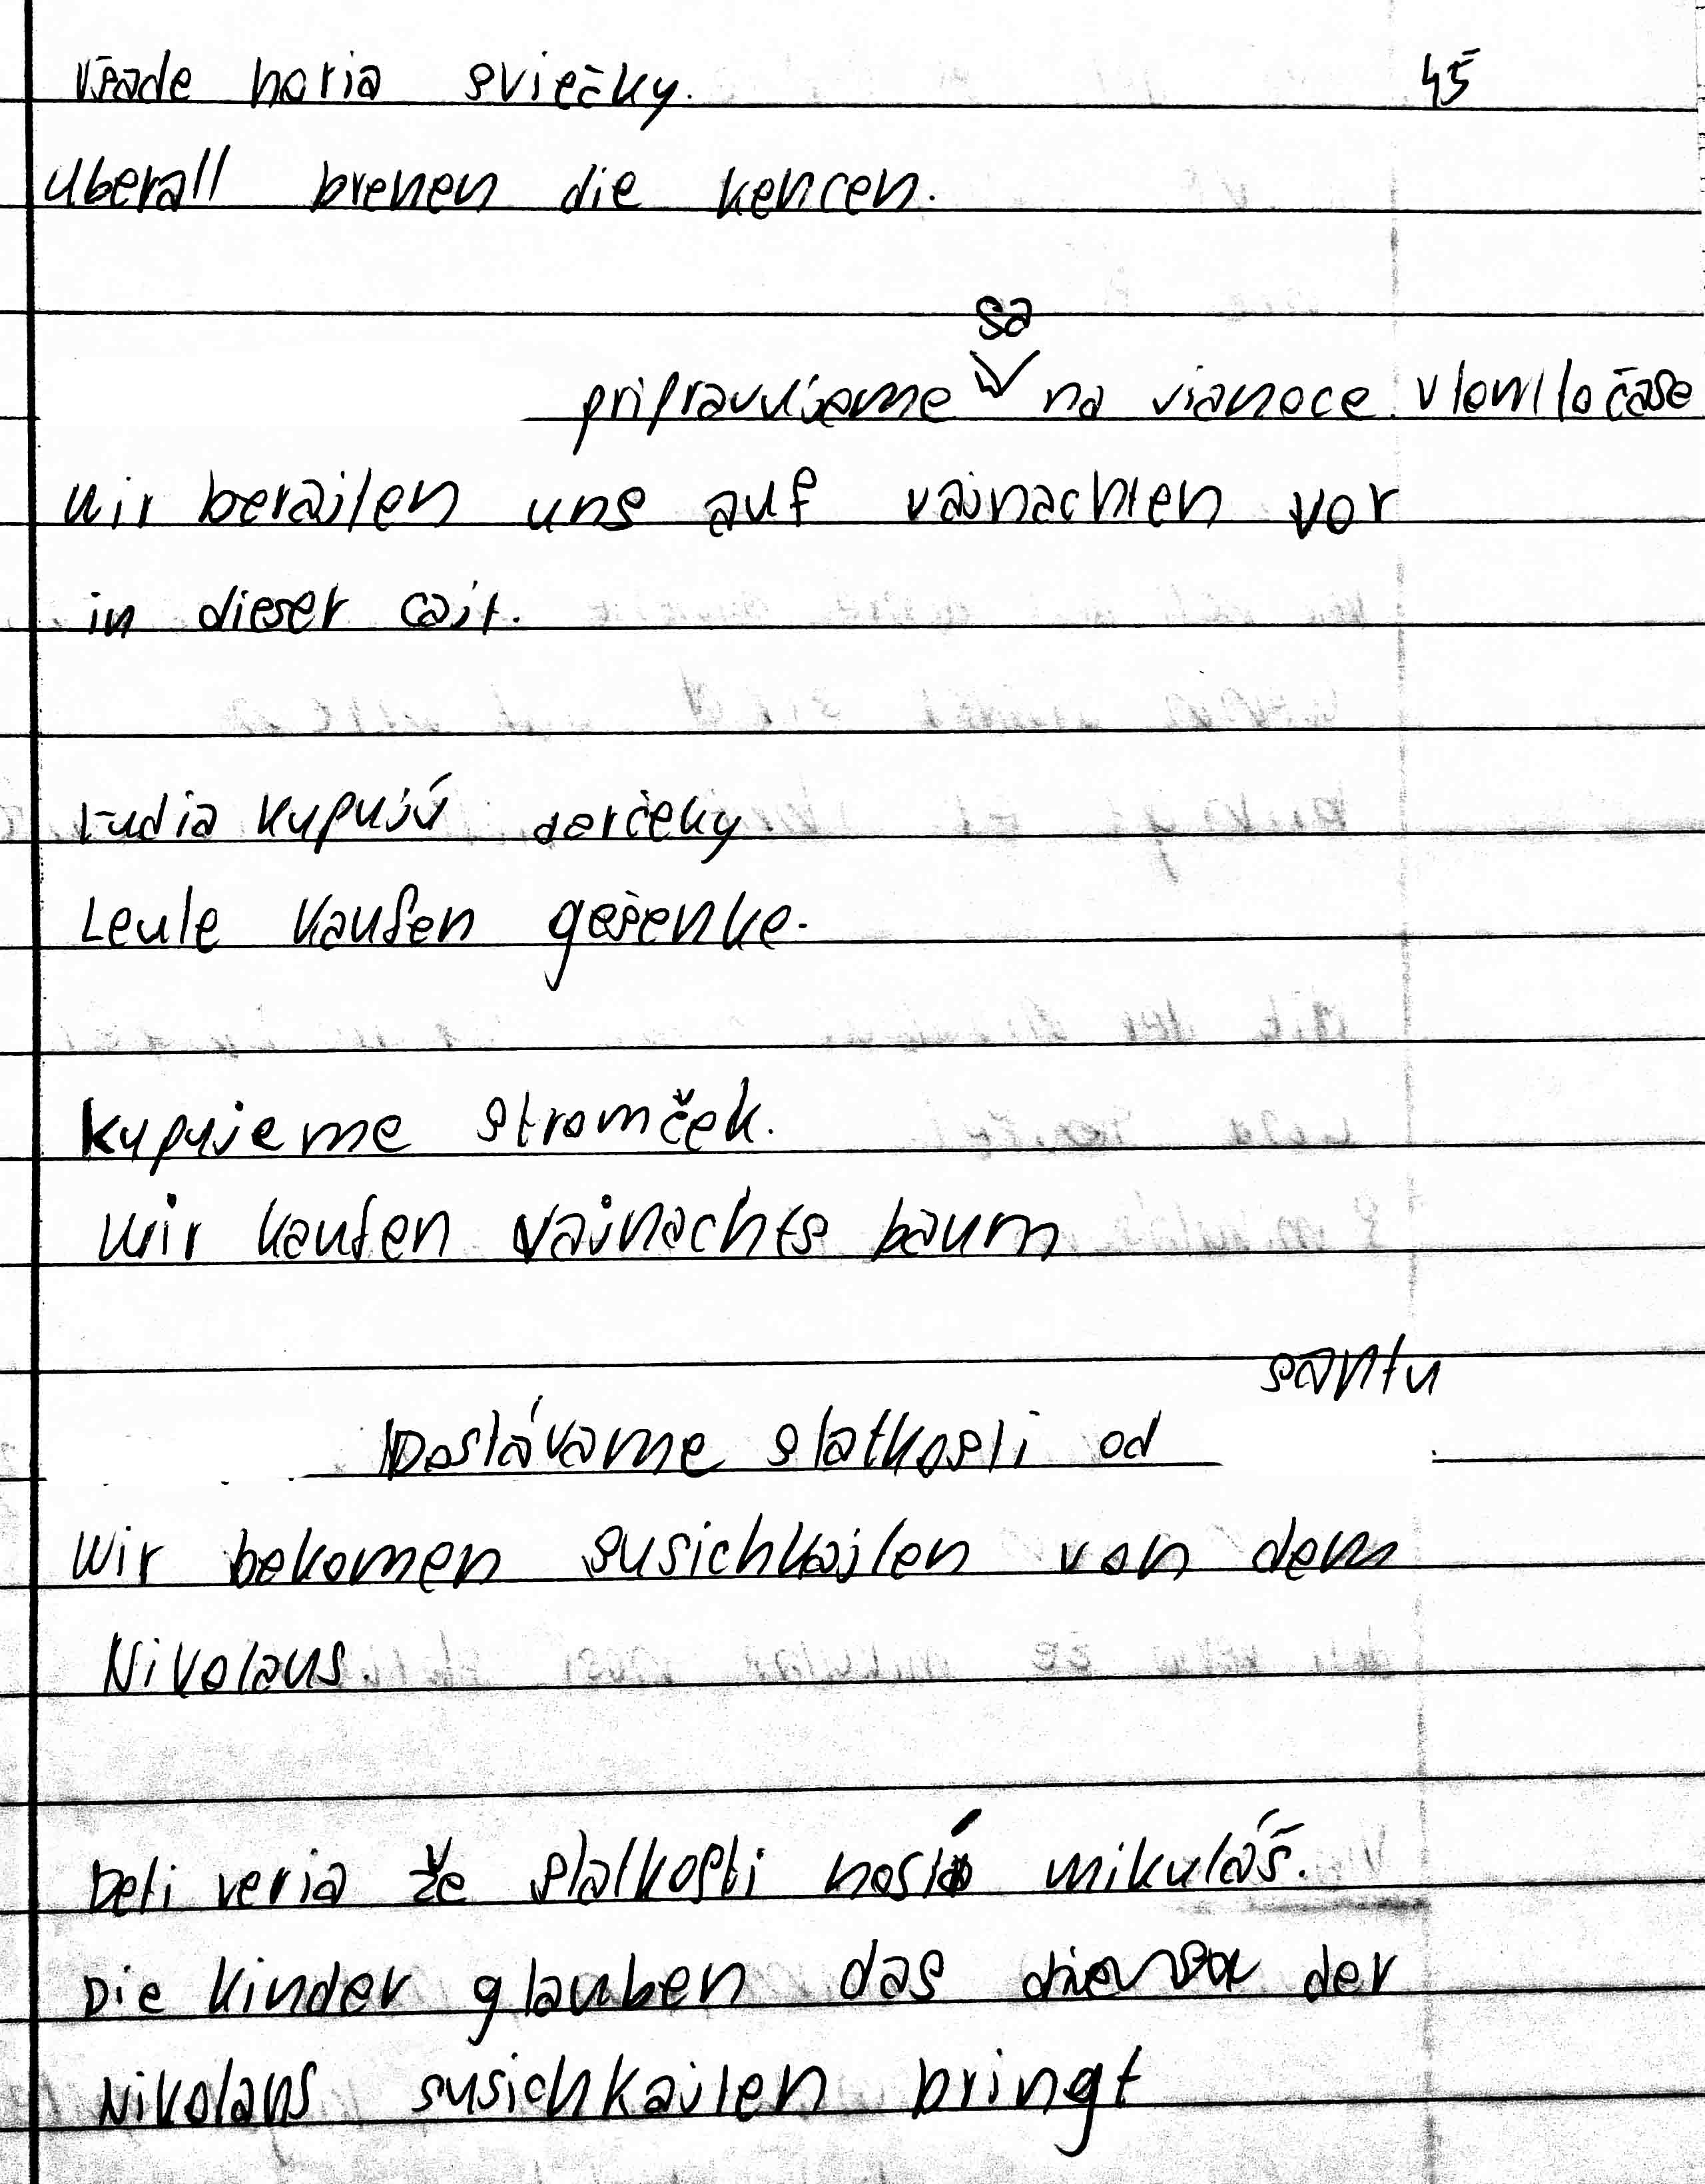 všade horia sviečky. 45
uberall brenen die kencen.
sa
pripravujeme na vianoce v tomto čase
wir beraiten uns auf vainachten vor
in dieser cait.
Ľudia kupujú darčeky
Leute kaufen gešenke.
kupujeme stromček.
wir kaufen vainachts baum
santu
Dostávame slatkosti od
wir bekomen susichkaiten von dem
Nikolaus.
Deti veria že slatkosti nosí mikuláš.
Die kinder glauben das der
Nikolaus susichkaiten bringt